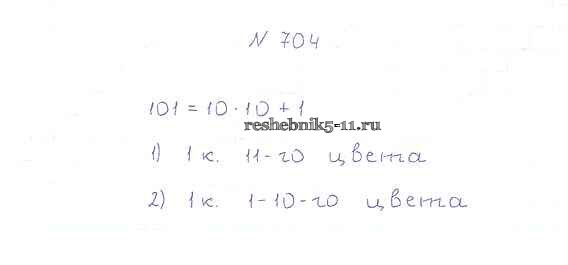 N 704
101 = 10 · 10 + 1
reshebnik5-11.ru
1) 1 к. 11-го цвета
2) 1 к. 1-10-го цвета